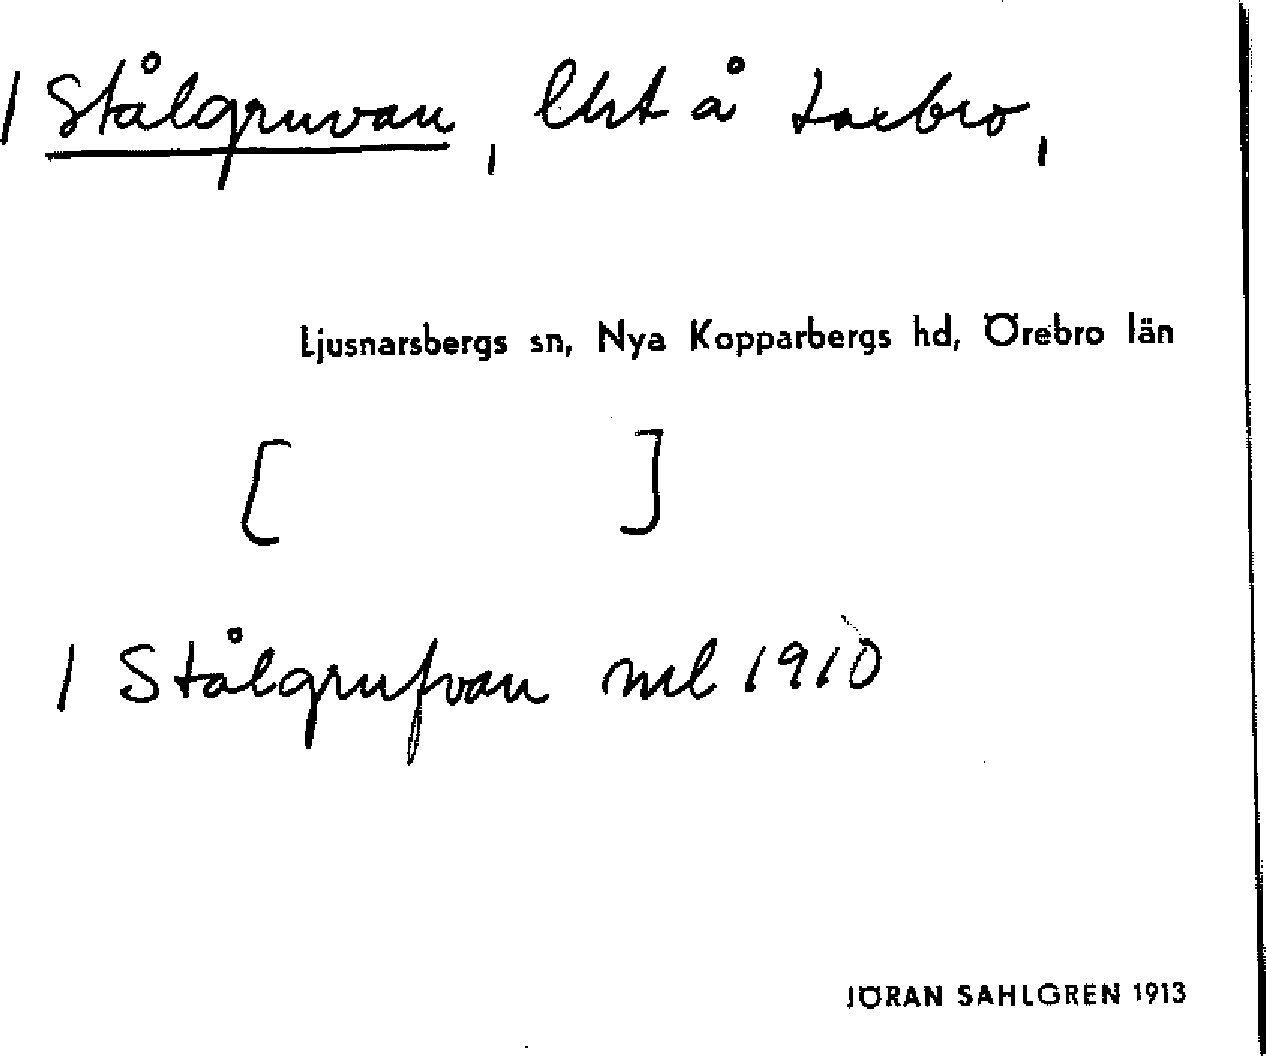 / Stålgruvan, lht å Laxbro,
Ljusnarsbergs sn, Nya Kopparbergs hd, Örebro län
[ ]
/ Stålgrufvan ml 1910
JÖRAN SAHLGREN 1913